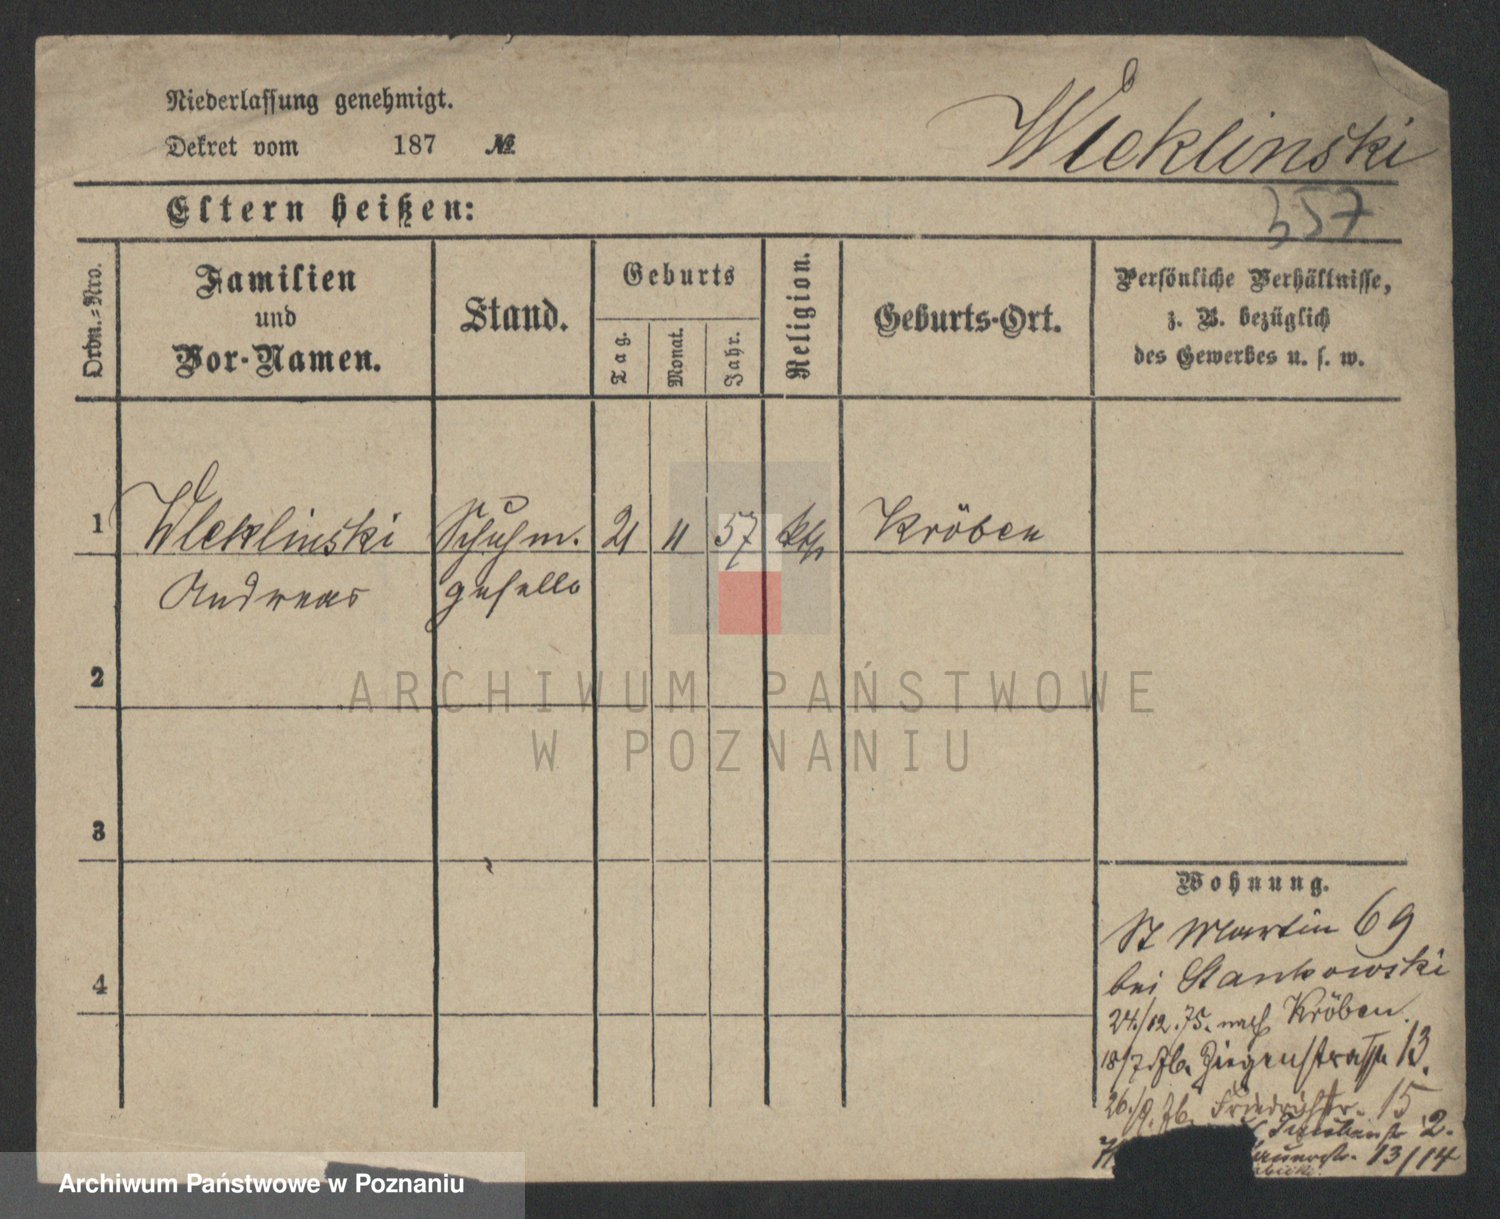 Niederlassung genehmigt.
Dekret vom 187 №
Wleklinski
Eltern heißen:
357
Ordn.-Nro.
Familien
und
Vor-Namen.
Stand.
Geburts
Tag.
Monat.
Jahr.
Religion.
Geburts-Ort.
Persönliche Verhältnisse,
z. B. bezüglich
des Gewerbes u. s. w.
1 Wleklinski Schuhm. 21 11 57 kth Kröben
Andreas geselle
2
ARCHIWUM PAŃSTWOWE
W POZNANIU
3
Wohnung.
St Martin 69
bei Stankowski
4
24/12.75. nach Kröben.
18/7.76. Ziegenstrasse 13.
26/9.76. Friedrichstr. 15
2.
13/14
Archiwum Państwowe w Poznaniu